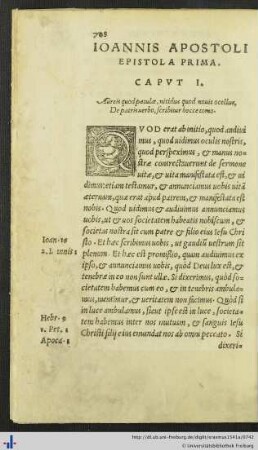 708
IOANNIS APOSTOLI
EPISTOLA PRIMA.
CAPVT I.
De patris verbo, scribitur hocce tomo.
QVOD erat ab initio, quod audiui
mus, quod uidimus oculis nostris,
quod perspeximus, & manus no
stræ contrectauerunt de sermone
uitæ, & uita manifestata est, & ui
dimus: etiam testamur, & annunciamus uobis uitã
æternam, quæ erat apud patrem, & manifestata est
nobis. Quod uidimus & audiuimus annunciamus
uobis, ut & uos societatem habeatis nobiscum, &
societas nostra sit cum patre & filio eius Iesu Chri
sto. Et hæc scribimus uobis, ut gaudiũ uestrum sit
plenum. Et hæc est promissio, quam audiuimus ex
ipso, & annunciamus uobis, quòd Deus lux est, &
tenebræ in eo non sunt ullæ. Si dixerimus, quòd so-
cietatem habemus cum eo, & in tenebris ambula-
mus, mentimur, & ueritatem non facimus. Quòd si
in luce ambulamus, sicut ipse est in luce, societa-
tem habemus inter nos mutuum, & sanguis Iesu
Christi filij eius emundat nos ab omni peccato. Si
dixeri-
Hebr. 9
1. Pet. 1
Apoca. 1
© Universitätsbibliothek Freiburg